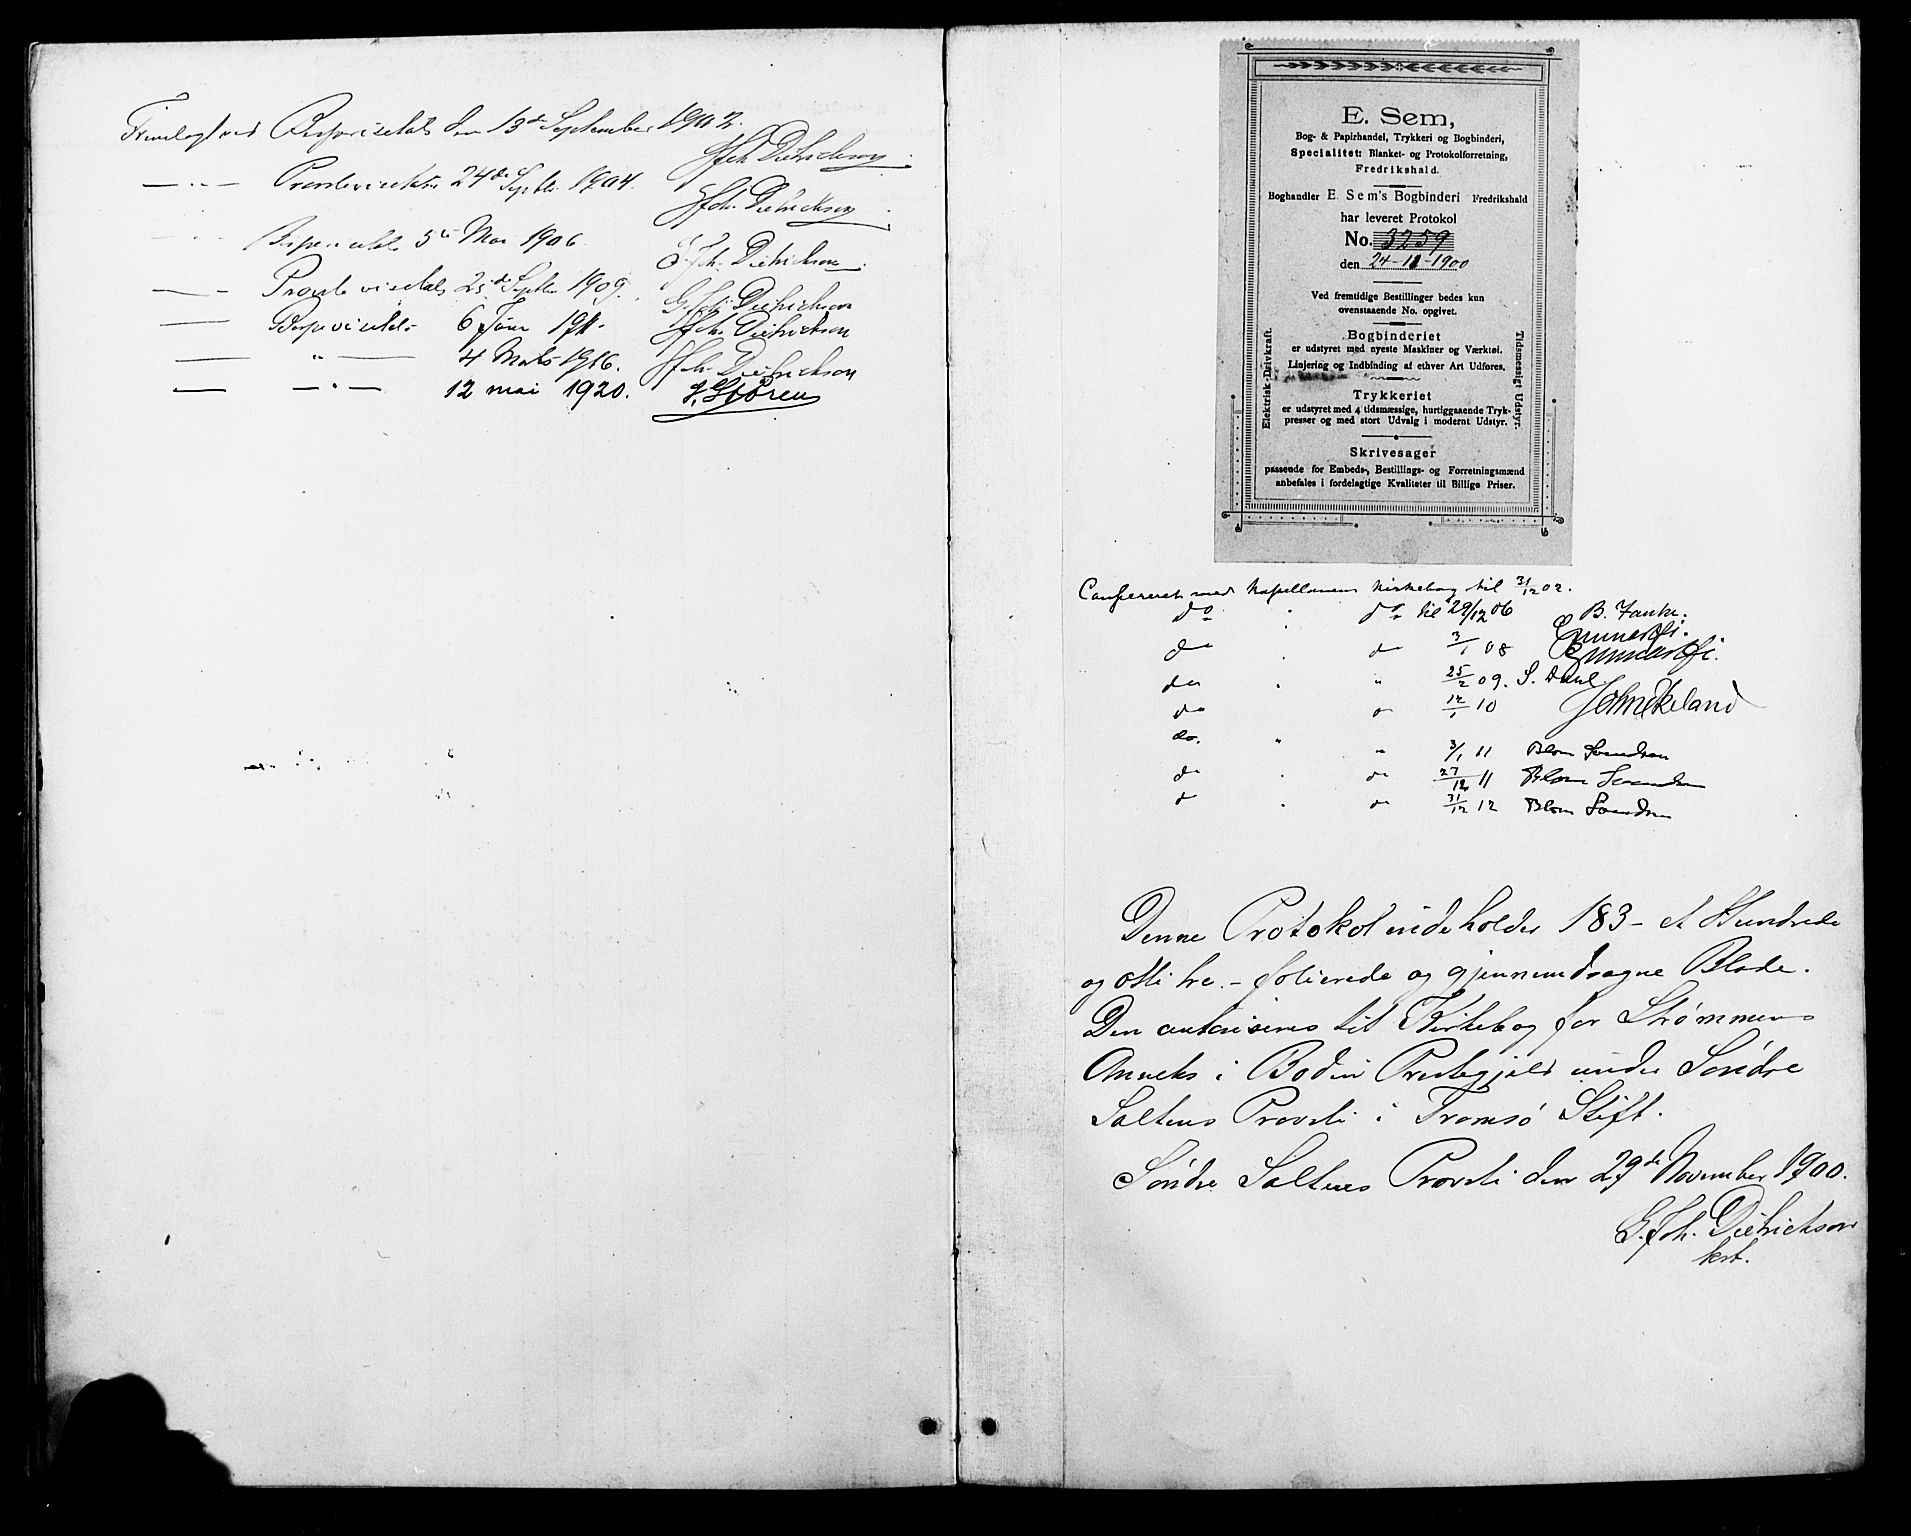 Fremlagt ved Bispevisitats den 13de September 1902.
G Joh. Dietrichson
— " — Provstevisitats 24de Septbr. 1904.
G Joh. Dietrichson
Bispevisitats 5te Mai 1906
G. Joh. Dietrichson
— " — Provstevisitats 25de Septbr 1909. G Joh Dietrichson
— Bispevisitats 6 Juni 1911. G Joh. Dietrichson
— " — 4 Marts 1916. G Joh. Dietrichson
— — " — 12 mai 1920. J. Støren
E. Sem,
Bog- & Papirhandel, Trykkeri og Bogbinderi,
Specialitet: Blanket- og Protokolforretning,
Fredrikshald.
Boghandler E. Sem's Bogbinderi Fredrikshald
har leveret Protokol
No. 3259
den 24-11-1900
Ved fremtidige Bestillinger bedes kun
ovenstaaende No. opgivet.
Bogbinderiet
er udstyret med nyeste Maskiner og Værktøi.
Linjering og Indbinding af ethver Art Udføres.
Trykkeriet
er udstyret med 4 tidsmæssige, hurtiggaaende Tryk-
presser og med stort Udvalg i modernt Udstyr.
Skrivesager
passende for Embeds-, Bestillings- og Forretningsmænd
anbefales i fordelagtige Kvaliteter til Billige Priser.
Elektrisk-Drivkraft.
Tidsmæssigt Udstyr.
Confereret med Kapellanens Kirkebog til 31/12 02.
do " do til 29/12 06 B. Fanke.
do " do 3/1 08
do " " 25/2 09. S. Dahl
do " 12/1 10 John Ekeland
do. " " 3/1 11 Blom Svendsen
do " do 27/12 11 Blom Svendsen
do " do 31/12 12 Blom Svendsen
Denne Protokol indeholder 183 - et Hundrede
og otti tre. - folierede og gjennemdragne Blade.
Den autoriseres til Kirkebog for Strømmens
Anneks i Bodin Prestegjeld under Søndre
Saltens Provsti i Tromsø Stift.
Søndre Saltens Provsti den 29de November 1900.
G. Joh. Dietrichson
kst.